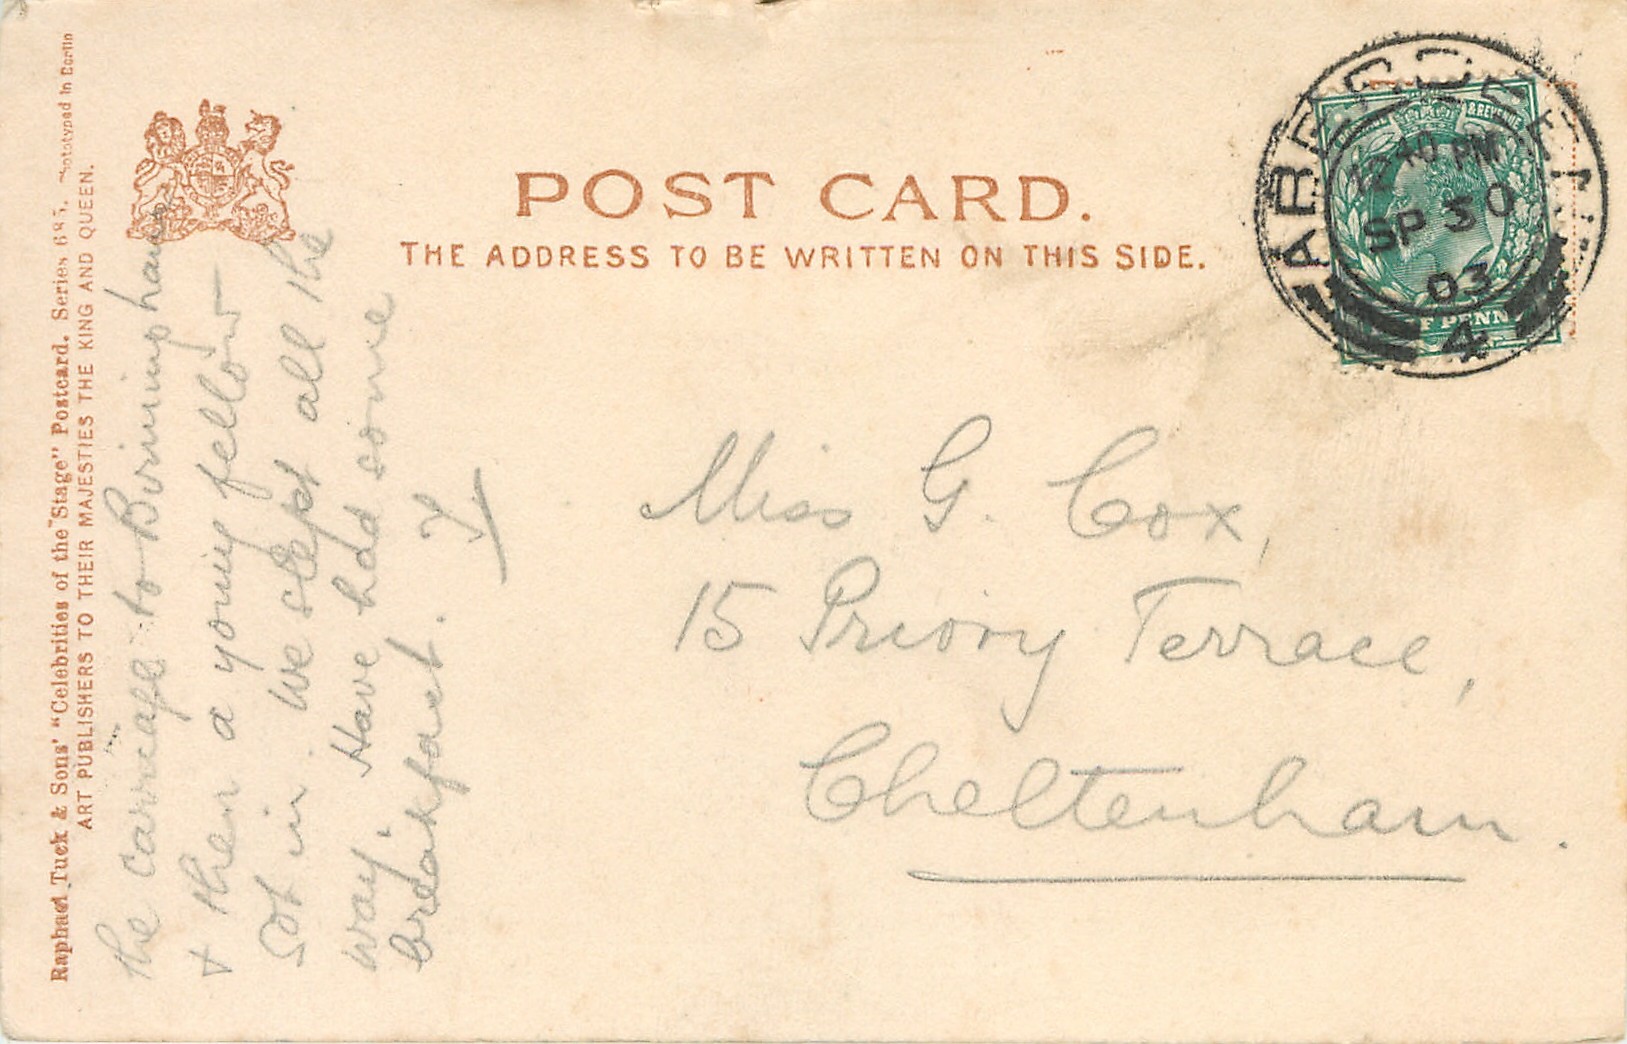 POST CARD.
THE ADDRESS TO BE WRITTEN ON THIS SIDE.
ABERDEEN
12 40 PM
SP 30
03
4
& REVENUE
F PENN
Miss G. Cox,
15 Priory Terrace,
Cheltenham.
Raphael Tuck & Sons' "Celebrities of the Stage" Postcard. Series in Berlin
ART PUBLISHERS TO THEIR MAJESTIES THE KING AND QUEEN.
the carriage to Birmingham
& then a young fellow
got in. We slept all the
way. Have had some
breakfast.